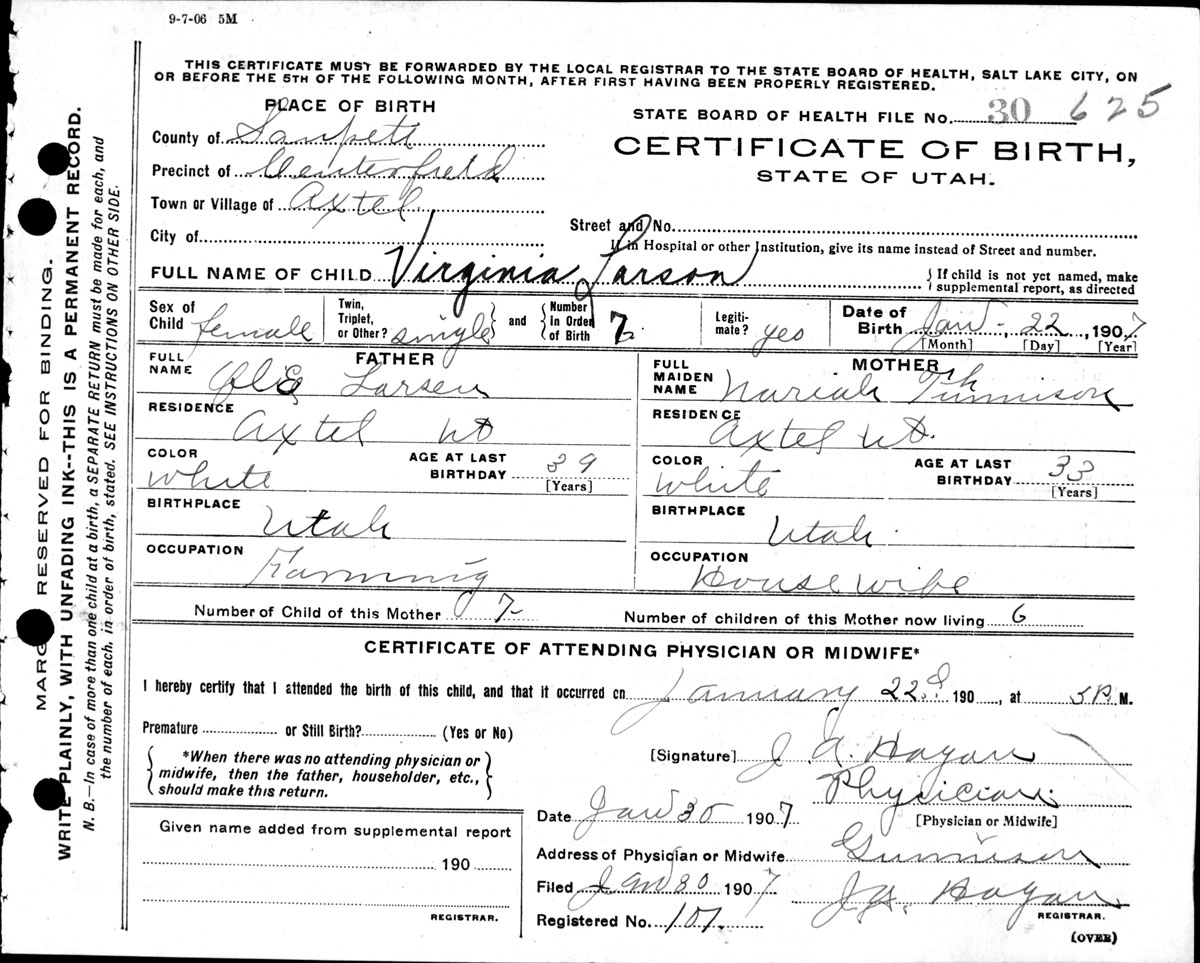 9-7-06 5M
THIS CERTIFICATE MUST BE FORWARDED BY THE LOCAL REGISTRAR TO THE STATE BOARD OF HEALTH, SALT LAKE CITY, ON
OR BEFORE THE 5TH OF THE FOLLOWING MONTH, AFTER FIRST HAVING BEEN PROPERLY REGISTERED.
PLACE OF BIRTH
STATE BOARD OF HEALTH FILE No. 30 625
County of Sanpete
CERTIFICATE OF BIRTH,
Precinct of Centerfield
STATE OF UTAH.
Town or Village of Axtel
Street and No.
City of
If in Hospital or other Institution, give its name instead of Street and number.
FULL NAME OF CHILD Virginia Larson
{ If child is not yet named, make
supplemental report, as directed
Sex of Child female
Twin, Triplet, or Other? single } and { Number in Order of Birth 7
Legiti-mate? yes
Date of Birth Jan - 22, 1907
[Month] [Day] [Year]
FATHER
FULL NAME Ole Larsen
RESIDENCE
Axtel Ut
COLOR white
AGE AT LAST BIRTHDAY 39
[Years]
BIRTHPLACE
Utah
OCCUPATION
Farming
MOTHER
FULL MAIDEN NAME
RESIDENCE
Axtel Ut.
COLOR white
AGE AT LAST BIRTHDAY 33
[Years]
BIRTHPLACE
Utah.
OCCUPATION
House wife
Number of Child of this Mother 7
Number of children of this Mother now living 6
CERTIFICATE OF ATTENDING PHYSICIAN OR MIDWIFE*
I hereby certify that I attended the birth of this child, and that it occurred on January 22d 190 , at 5 P. M.
Premature or Still Birth? (Yes or No)
{ *When there was no attending physician or
midwife, then the father, householder, etc.,
should make this return. }
[Signature] J. A. Hagan
Physician.
[Physician or Midwife]
Date Jan 30 1907
Given name added from supplemental report
190
REGISTRAR.
Address of Physician or Midwife Gunnison
Filed Jan 30 1907 J. A. Hagan
REGISTRAR.
Registered No. 107.
(OVER)
MARGIN RESERVED FOR BINDING.
WRITE PLAINLY, WITH UNFADING INK--THIS IS A PERMANENT RECORD.
N. B.—In case of more than one child at a birth, a SEPARATE RETURN must be made for each, and
the number of each, in order of birth, stated. SEE INSTRUCTIONS ON OTHER SIDE.